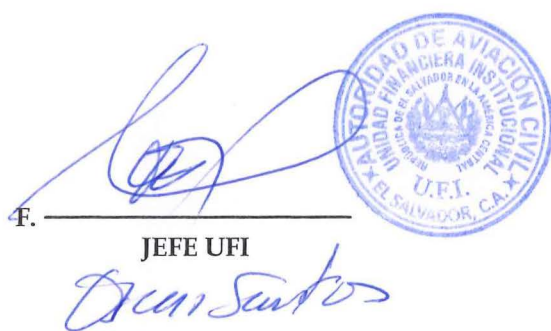 AUTORIDAD DE AVIACIÓN CIVIL
UNIDAD FINANCIERA INSTITUCIONAL
REPUBLICA DE EL SALVADOR EN LA AMERICA CENTRAL
U.F.I.
EL SALVADOR, C.A.
F.
JEFE UFI
Santos